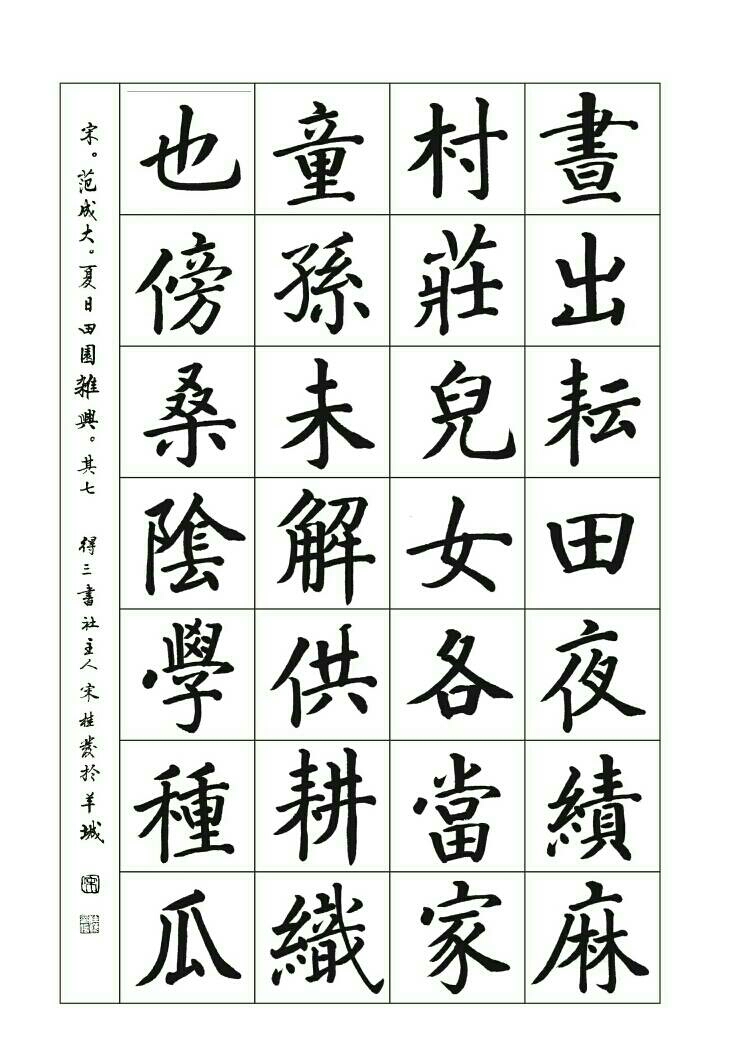 晝出耘田夜績麻
村莊兒女各當家
童孫未解供耕織
也傍桑陰學種瓜
宋。范成大。夏日田園雜興。其七 得三書社主人宋桂發於羊城